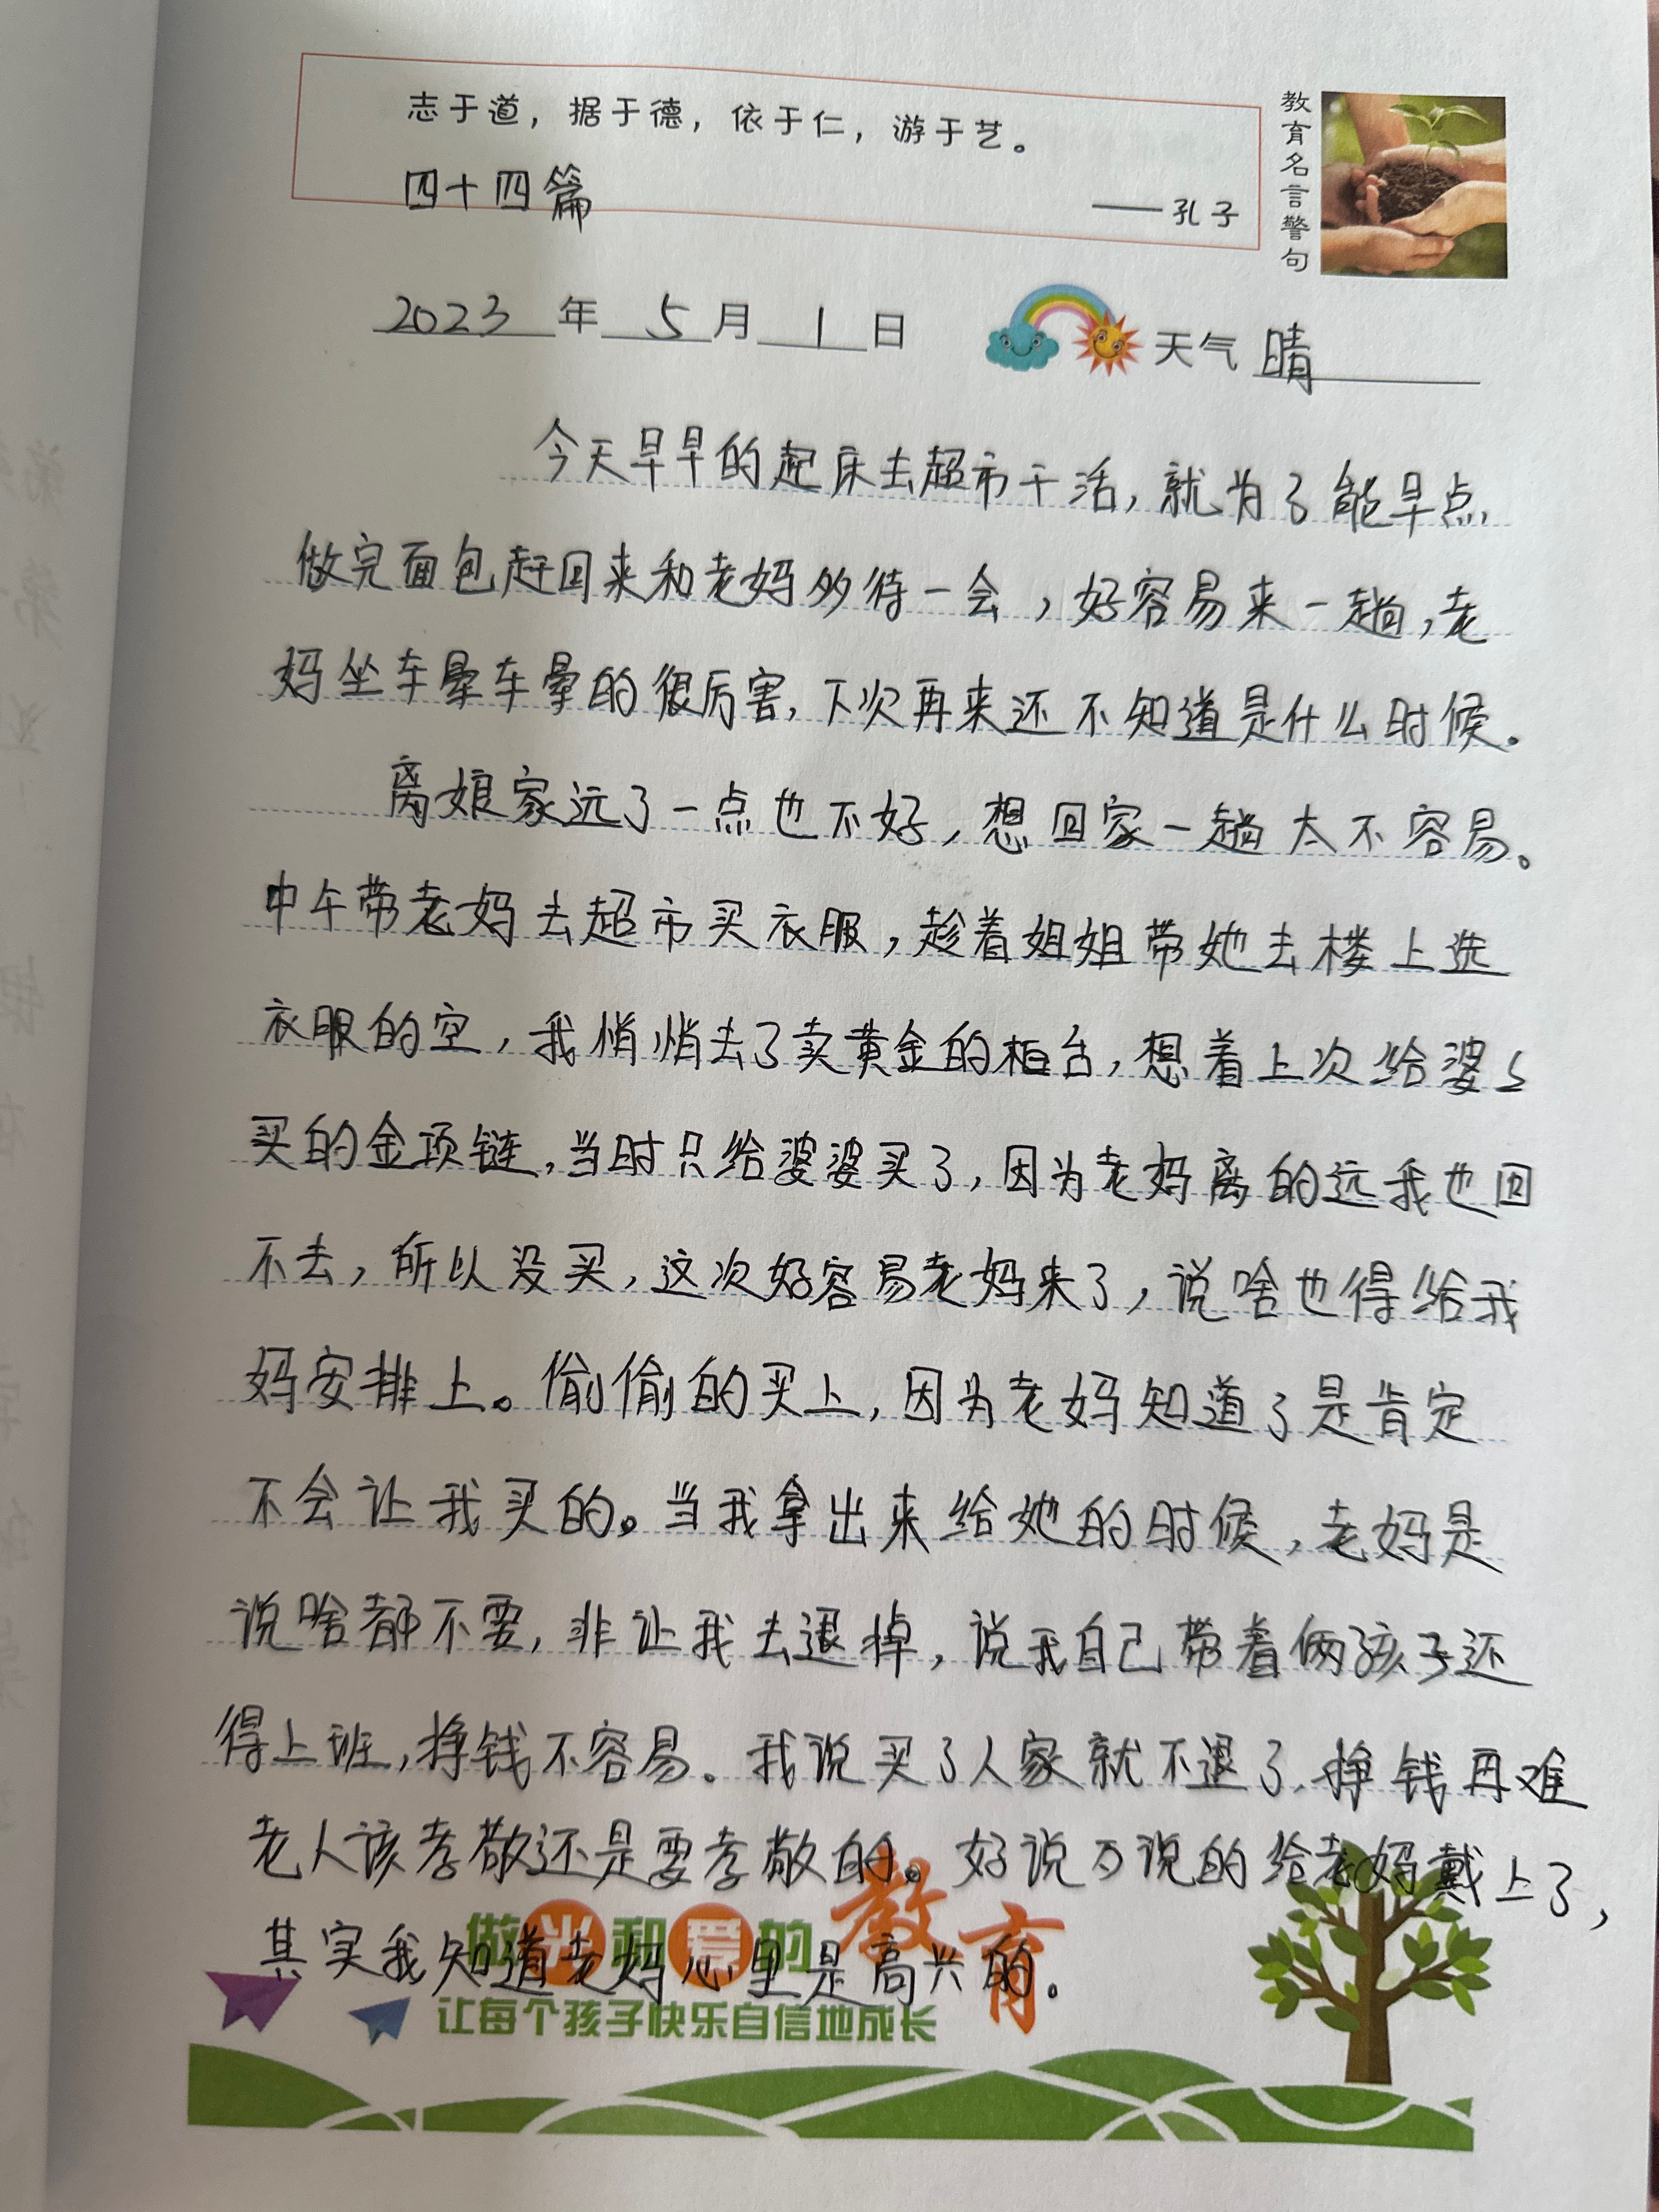 志于道，据于德，依于仁，游于艺。
四十四篇
——孔子
教育名言警句
2023年5月1日 天气 晴
今天早早的起床去超市干活，就为了能早点
做完面包赶回来和老妈多待一会，好容易来一趟，老
妈坐车晕车晕的很厉害，下次再来还不知道是什么时候。
离娘家远了一点也不好，想回家一趟太不容易。
中午带老妈去超市买衣服，趁着姐姐带她去楼上选
衣服的空，我悄悄去了卖黄金的柜台，想着上次给婆〻
买的金项链，当时只给婆婆买了，因为老妈离的远我也回
不去，所以没买，这次好容易老妈来了，说啥也得给我
妈安排上。偷偷的买上，因为老妈知道了是肯定
不会让我买的。当我拿出来给她的时候，老妈是
说啥都不要，非让我去退掉，说我自己带着俩孩子还
得上班，挣钱不容易。我说买了人家就不退了，挣钱再难
老人该孝敬还是要孝敬的。好说歹说的给老妈戴上了，
其实我知道老妈心里是高兴的。
做光和爱的教育
让每个孩子快乐自信地成长